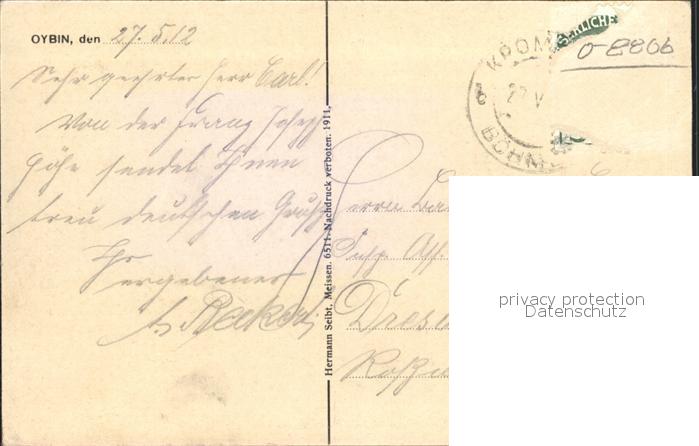 OYBIN, den 27.5.12
Sehr geehrter Herr Carl!
Von der Franz Joseph
Höhe sendet Ihnen
treu deutschen Gruß
Ihr
ergebener
Hermann Seibt, Meissen. 6511. Nachdruck verboten. 1911.
KROM
27 V
BÖHM
SERLICHE
0-8806
Herrn
Dres
privacy protection
Datenschutz